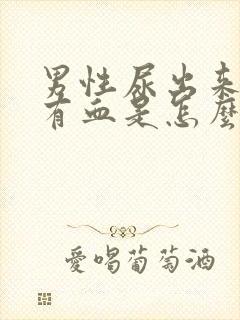 男性尿出来
有血是怎麽
愛喝葡萄酒